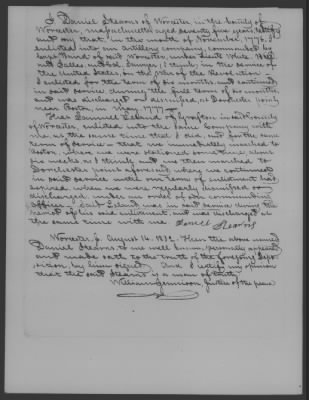 I Daniel Stearns of Worcester, in the County of
Worcester, Massachusetts aged seventy five years, testify
and say that in the month of November 1776, I
enlisted into an Artillery company, commanded by
Capt. of said Worcester, under Lieuts White,
and, I think, in the service of
the United States, in the War of the Revolution —
I enlisted for the term of six months and continued
in said service during the full term of six months,
and was discharged or dismissed, at Dorchester point
near Boston, in May, 1777 —
That Samuel Leland of Grafton in said County
of Worcester, enlisted into the same Company with
me, at the same time that I did, and for the same
term of service — that we immediately marched to
Boston, where we were stationed some time, about
six weeks, as I think, and we then marched to
Dorchester point aforesaid, where we continued
in said service until our term of enlistment had
expired, when we were regularly dismissed or
discharged, under an order of our commanding
officer; said Leland was in said service during the
period of his said enlistment, and was discharged at
the same time with me. Daniel Stearns
Worcester ss. August 14. 1832. Then the above named
Daniel Stearns to me well known, personally appeared
and made oath to the truth of the foregoing depo-
sition, by him signed. And I certify my opinion
that the said Stearns is a man of truth.
William Jennison, Justice of the peace